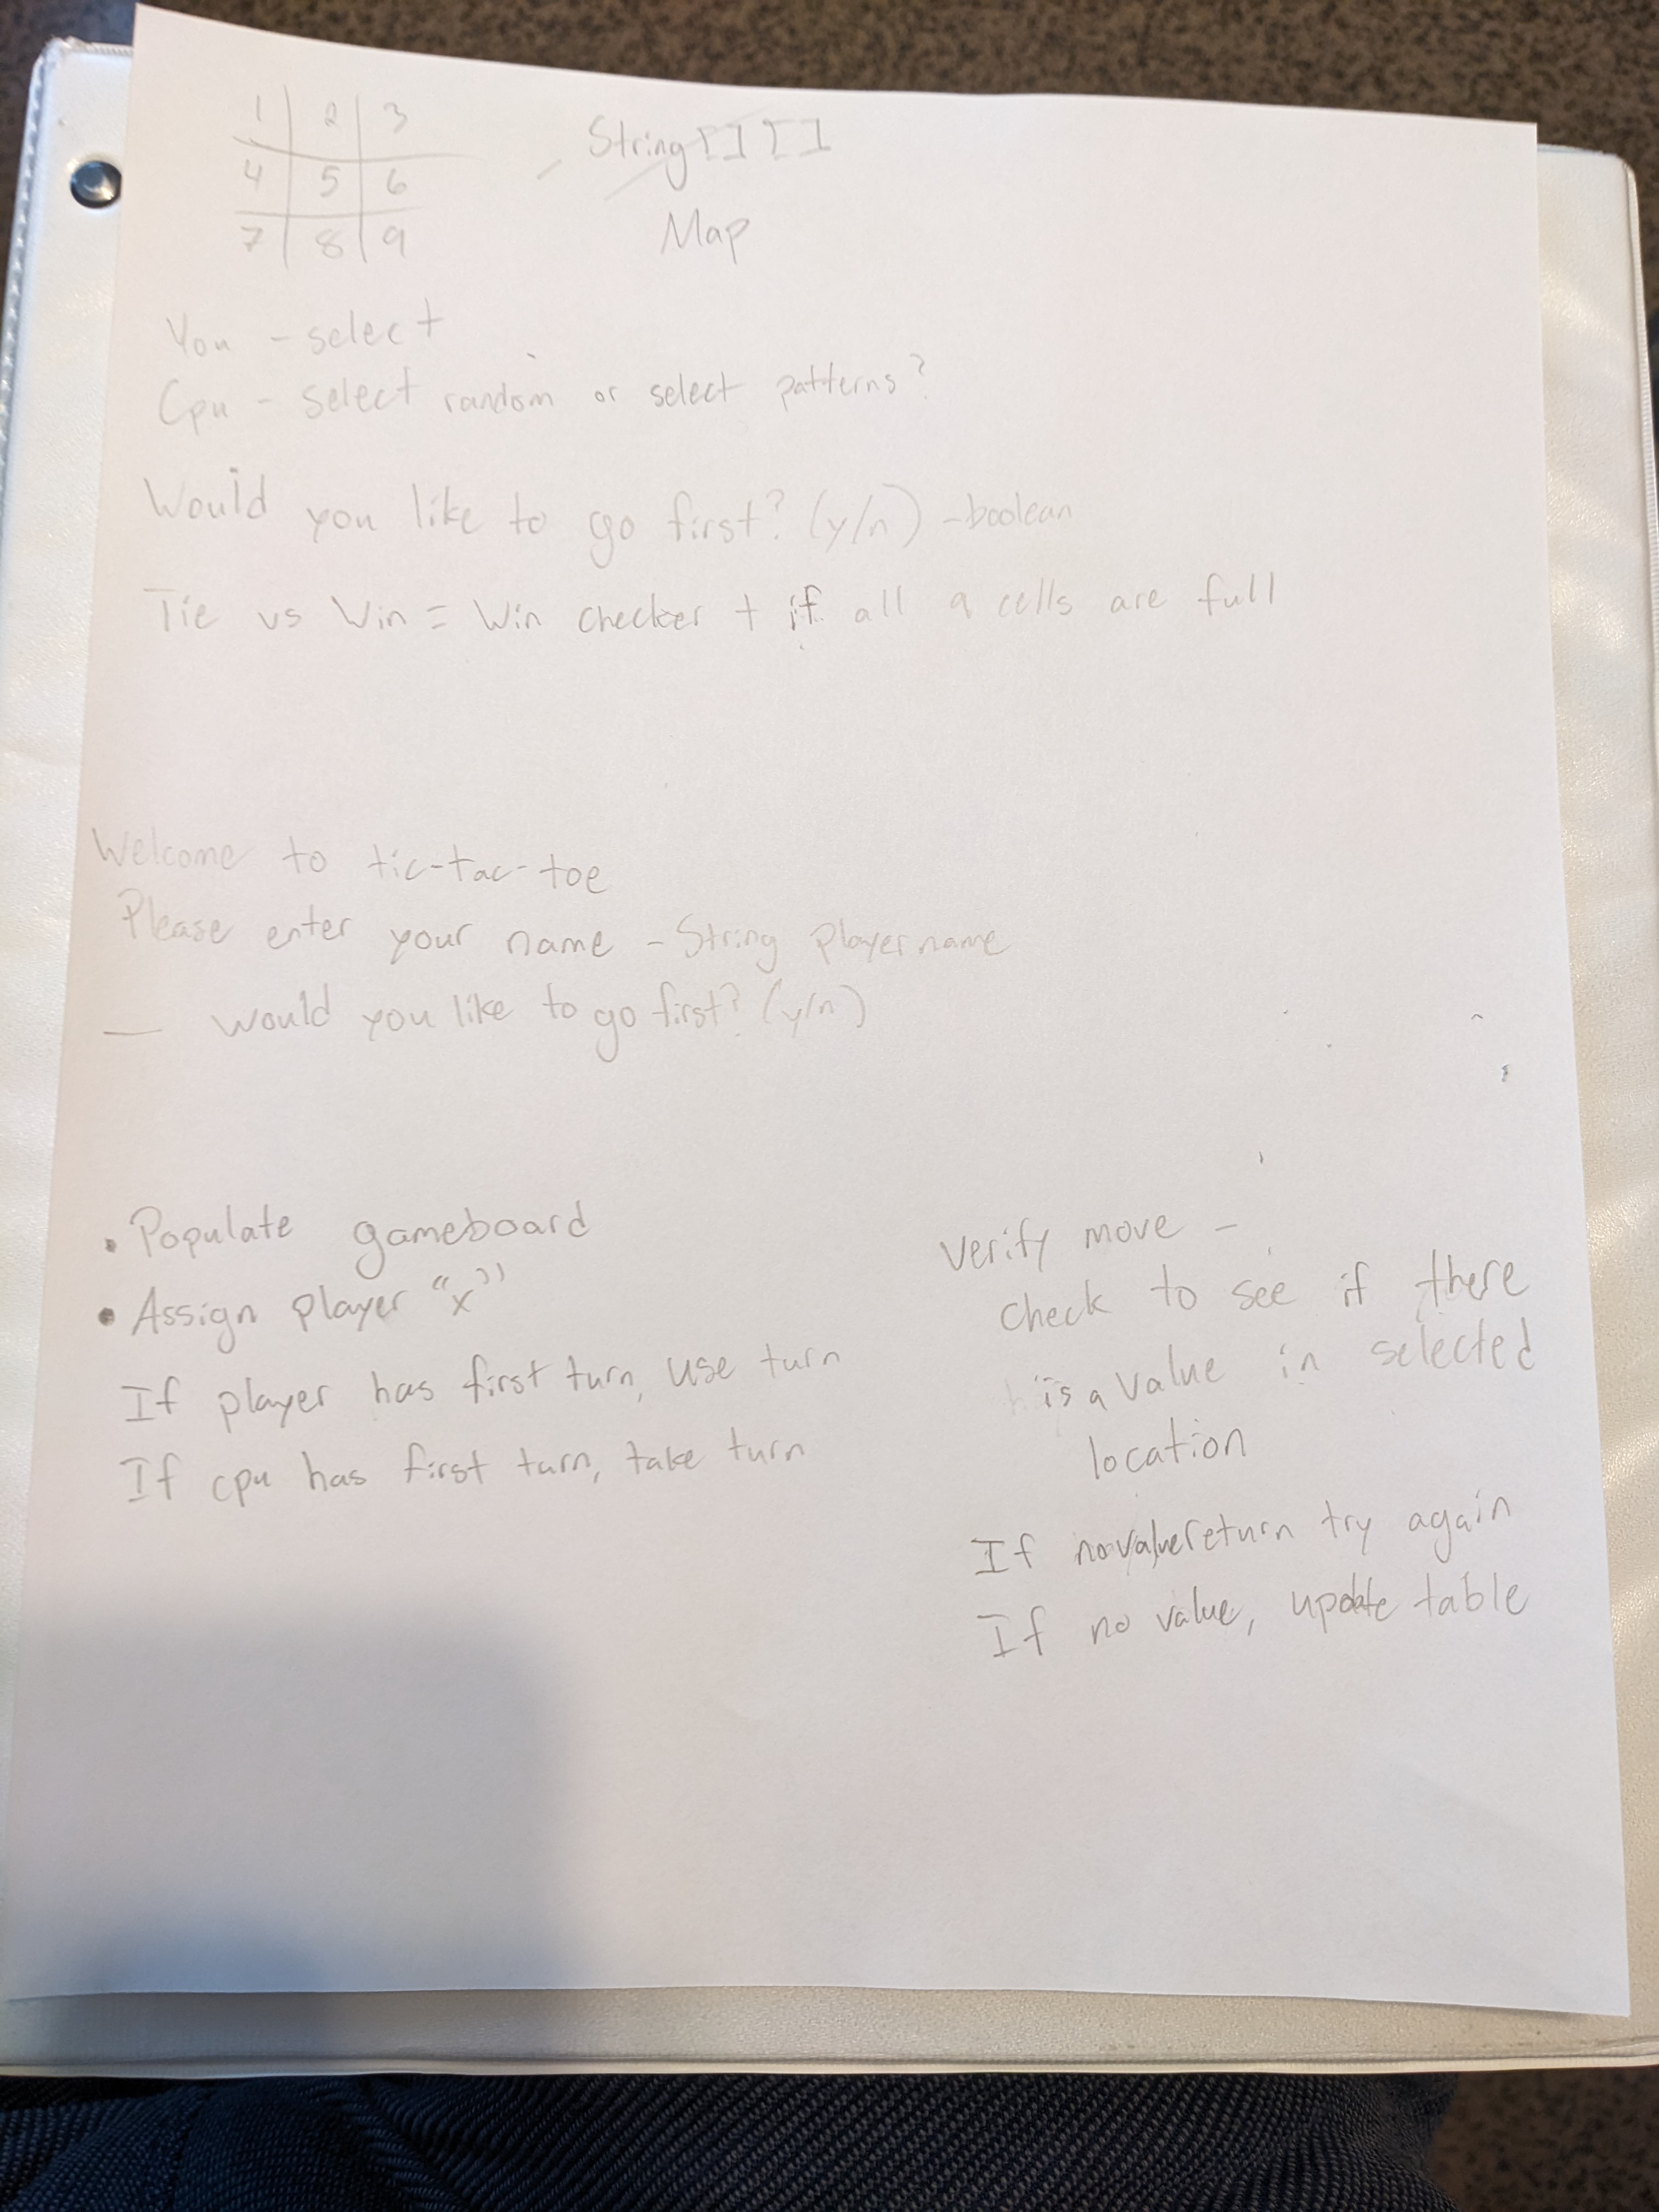 1 2 3
4 5 6
7 8 9
String[][]
Map
You - select
Cpu - select random or select patterns?
Would you like to go first? (y/n) - boolean
Tie vs Win = Win checker + if all 9 cells are full
Welcome to tic-tac-toe
Please enter your name - String playername
__ would you like to go first? (y/n)
• Populate gameboard
• Assign player "x"
If player has first turn, use turn
If cpu has first turn, take turn
Verify move -
check to see if there
is a value in selected
location
If novalue return try again
If no value, update table